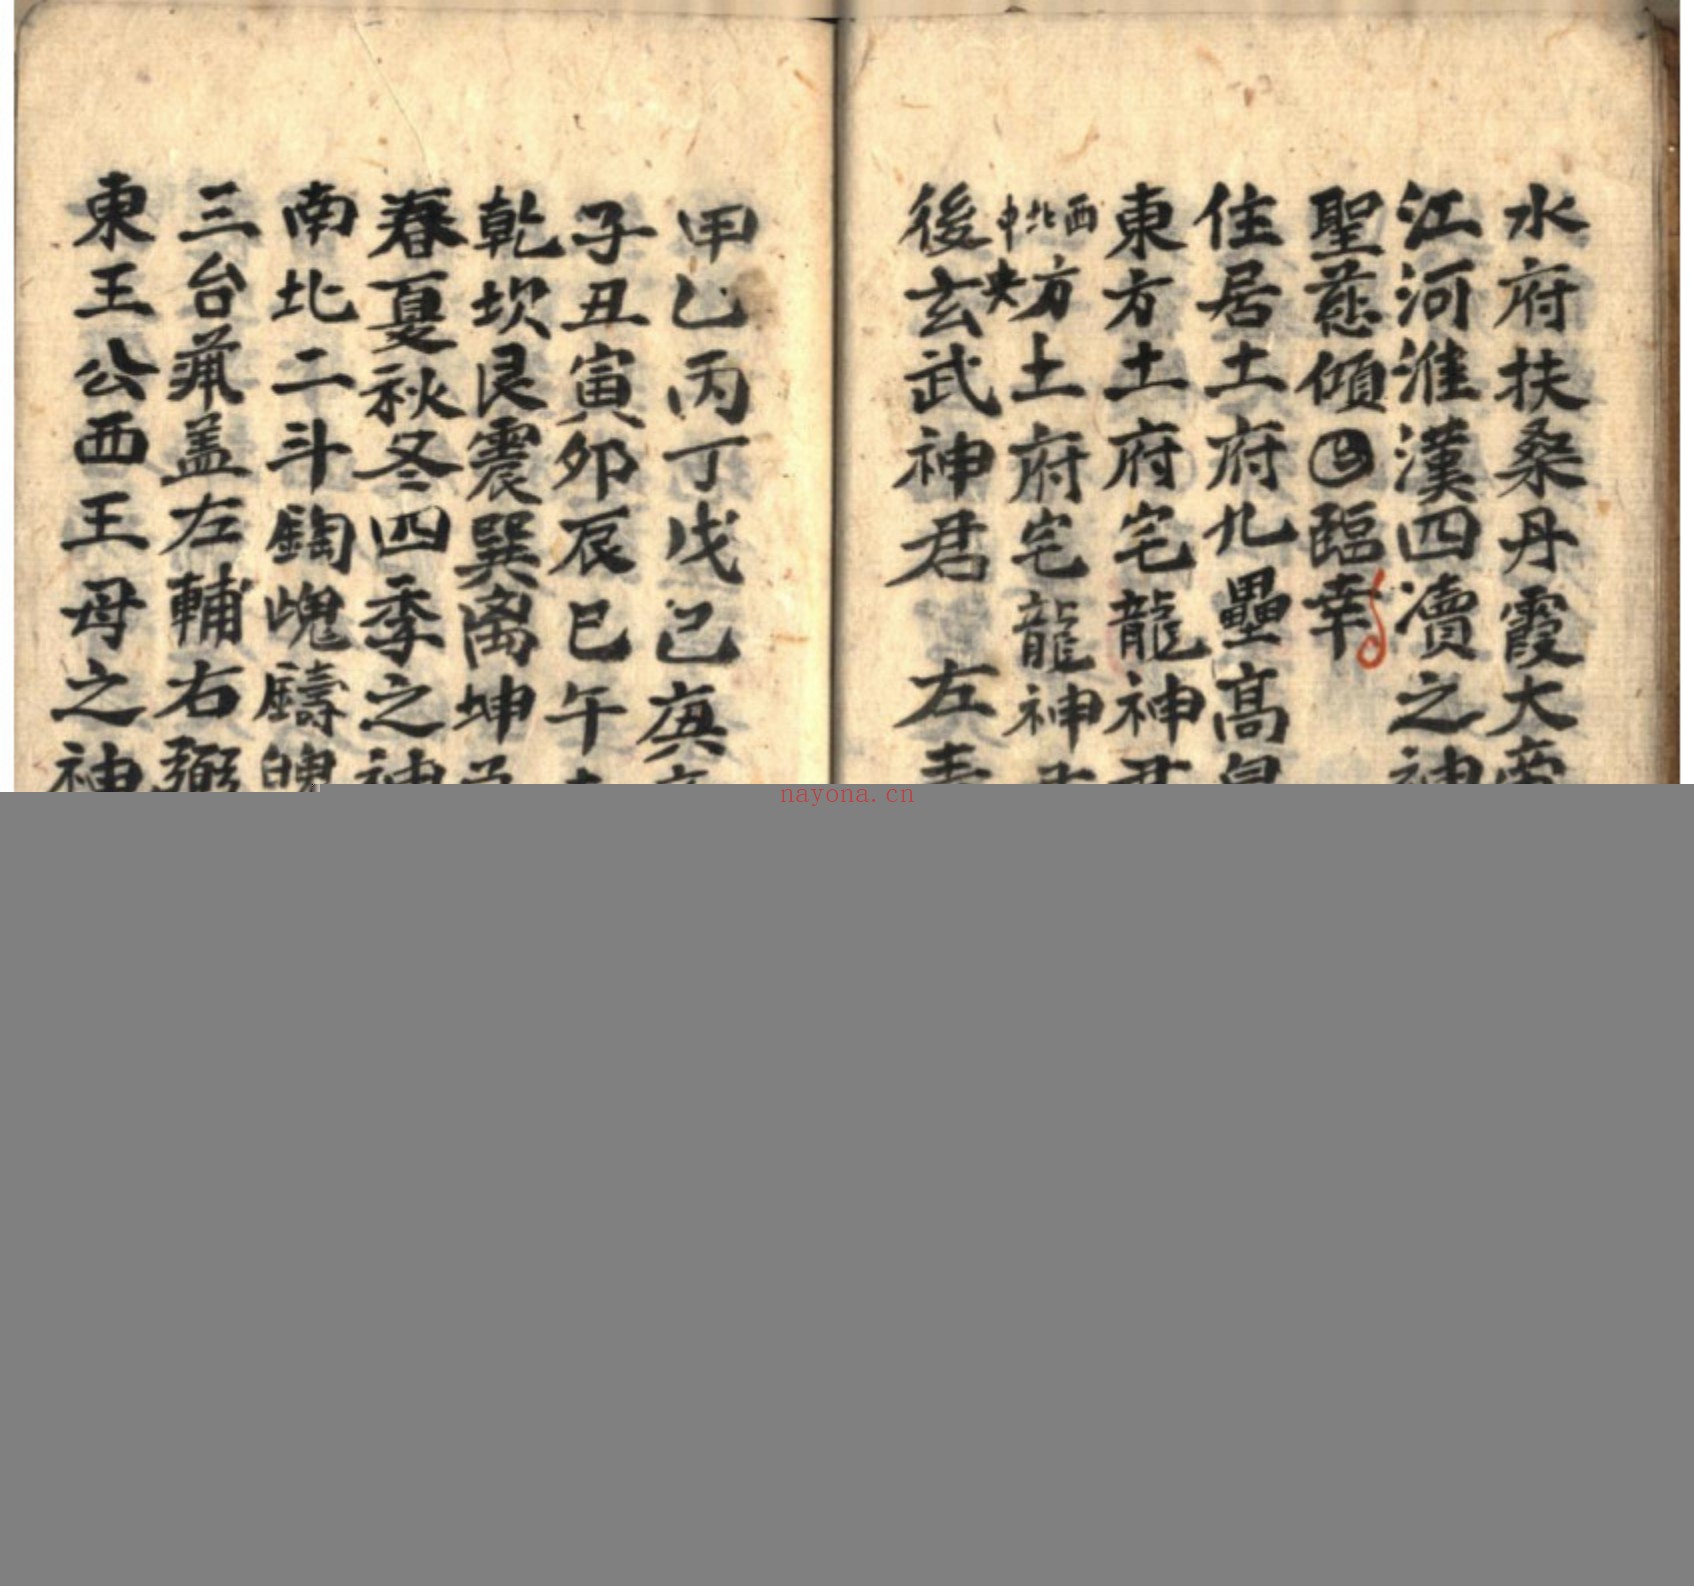 水府扶桑丹霞大帝
江河淮漢四瀆之神
聖慈傾臨幸
住居土府九壘高皇
東方土府宅龍神君
西北中央方土府宅龍神
後玄武神君 左青
甲乙丙丁戊己庚辛
子丑寅卯辰巳午未
乾坎艮震巽离坤兌
春夏秋冬四季之神
南北二斗
三台華盖左輔右弼
東王公西王王母之神
nayona.cn